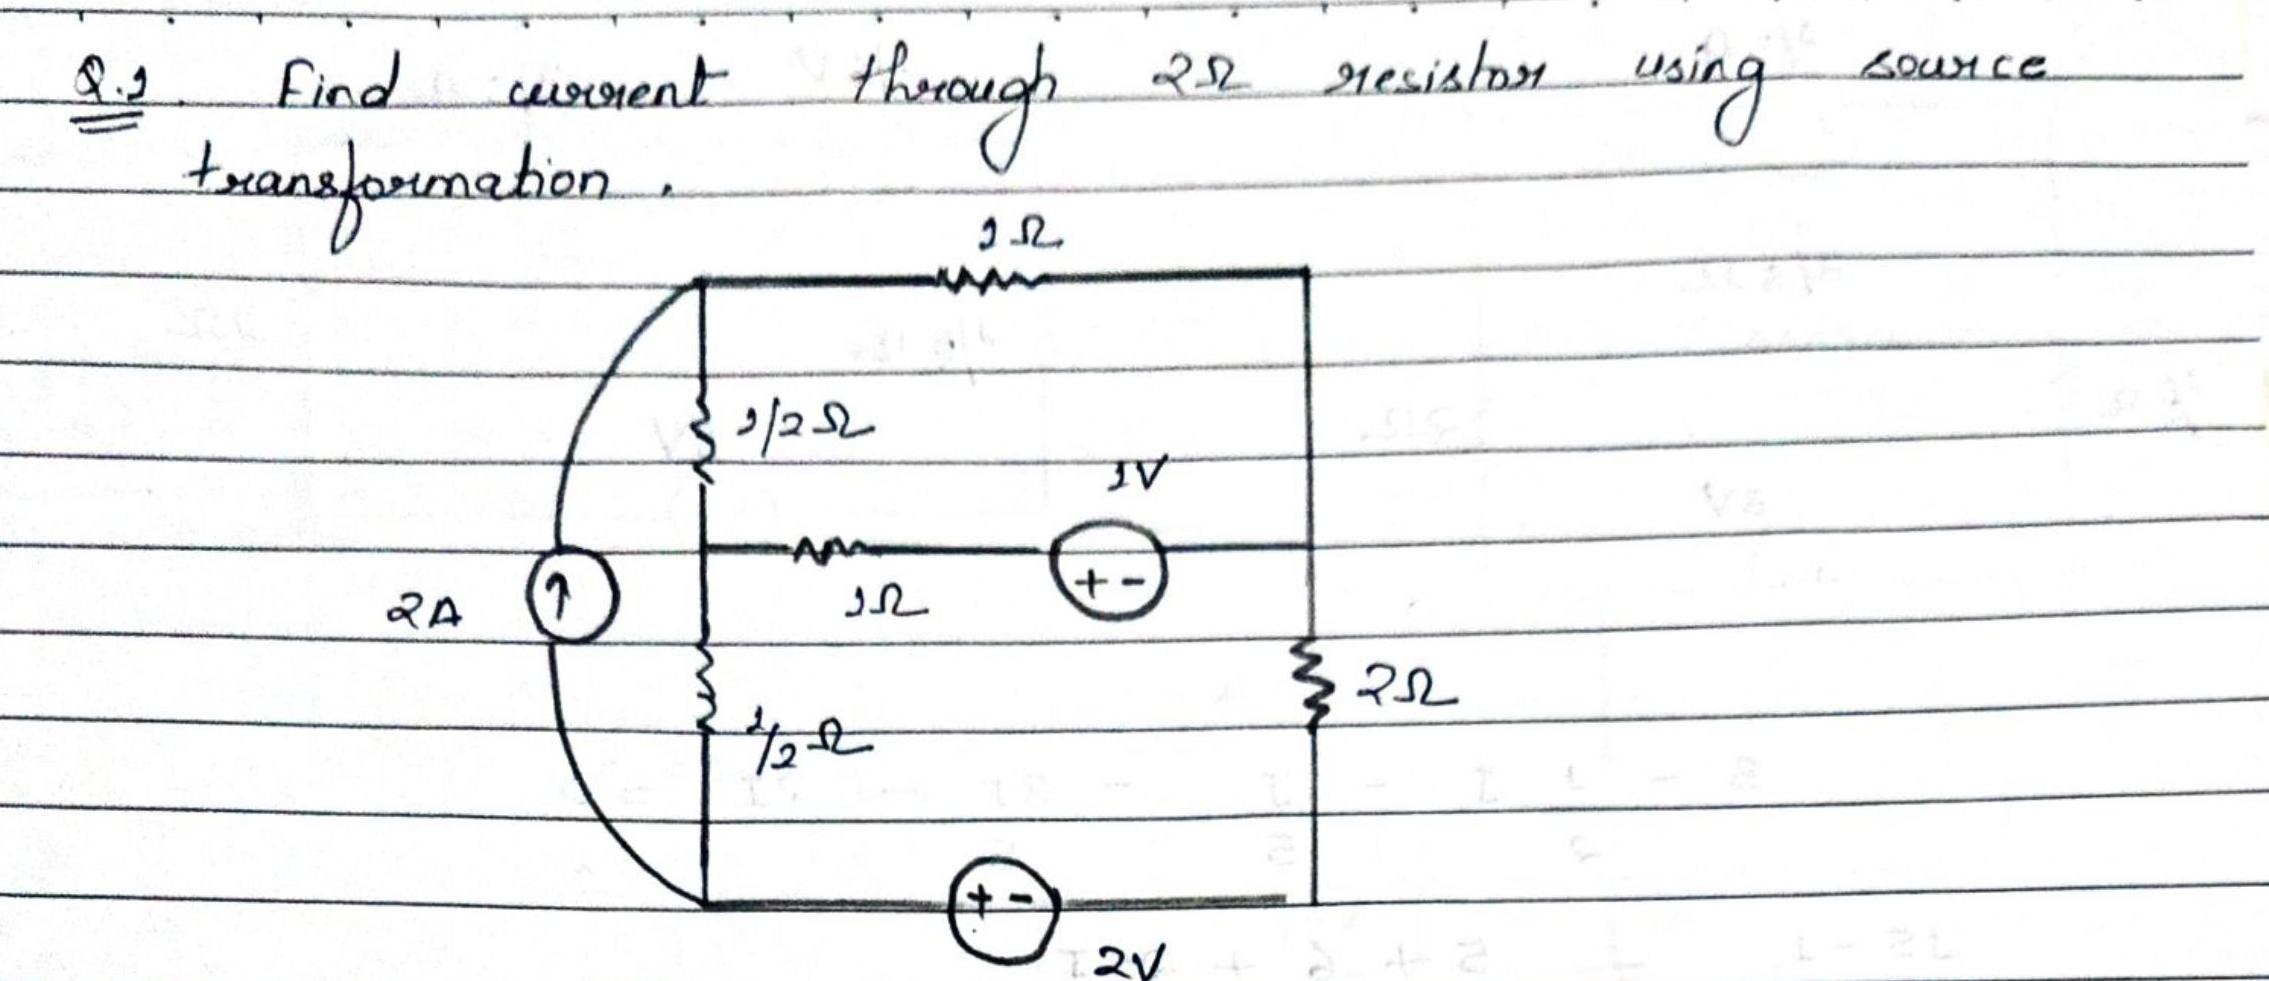 Q.1. Find current through 2Ω resistor using source
transformation.
1Ω
1/2Ω
1V
+ -
1Ω
2A
↑
2Ω
1/2Ω
+ -
2V